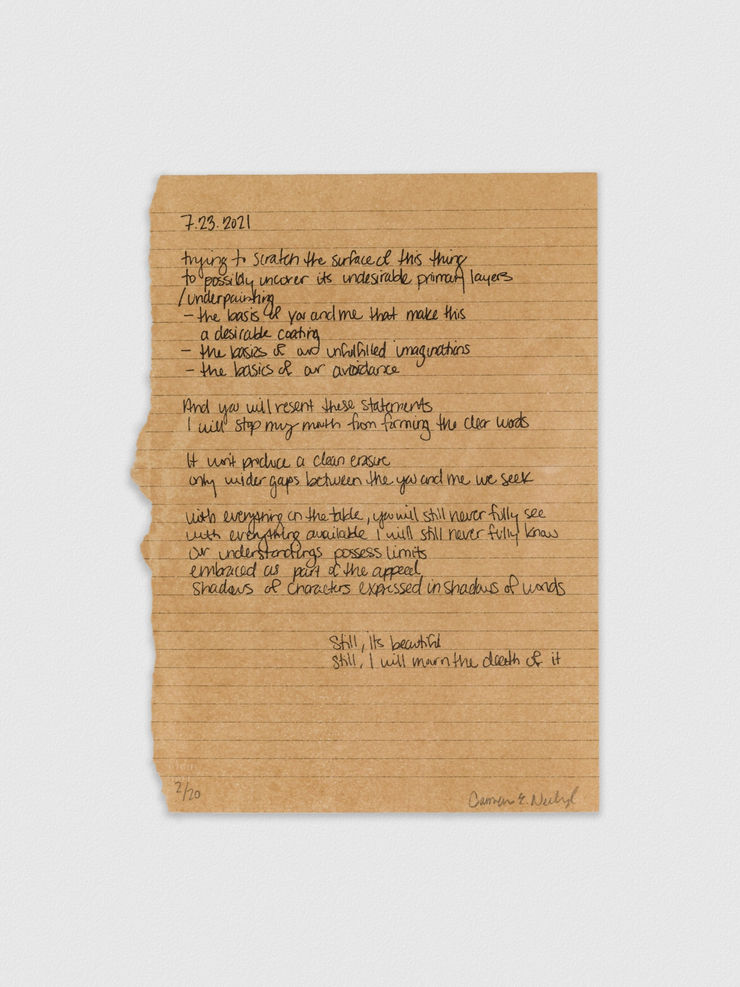 7.23.2021
trying to scratch the surface of this thing
to possibly uncover its undesirable primary layers
/underpainting
- the basis of you and me that make this
a desirable coating
- the basics of our unfulfilled imaginations
- the basics of our avoidance
And you will resent these statements
I will stop my mouth from forming the clear words
It won't produce a clean erasure
only wider gaps between the you and me we seek
with everything on the table, you will still never fully see
with everything available I will still never fully know
Our understandings possess limits
embraced as part of the appeal
shadows of characters expressed in shadows of words
Still, its beautiful
Still, I will mourn the death of it
2/20
E.